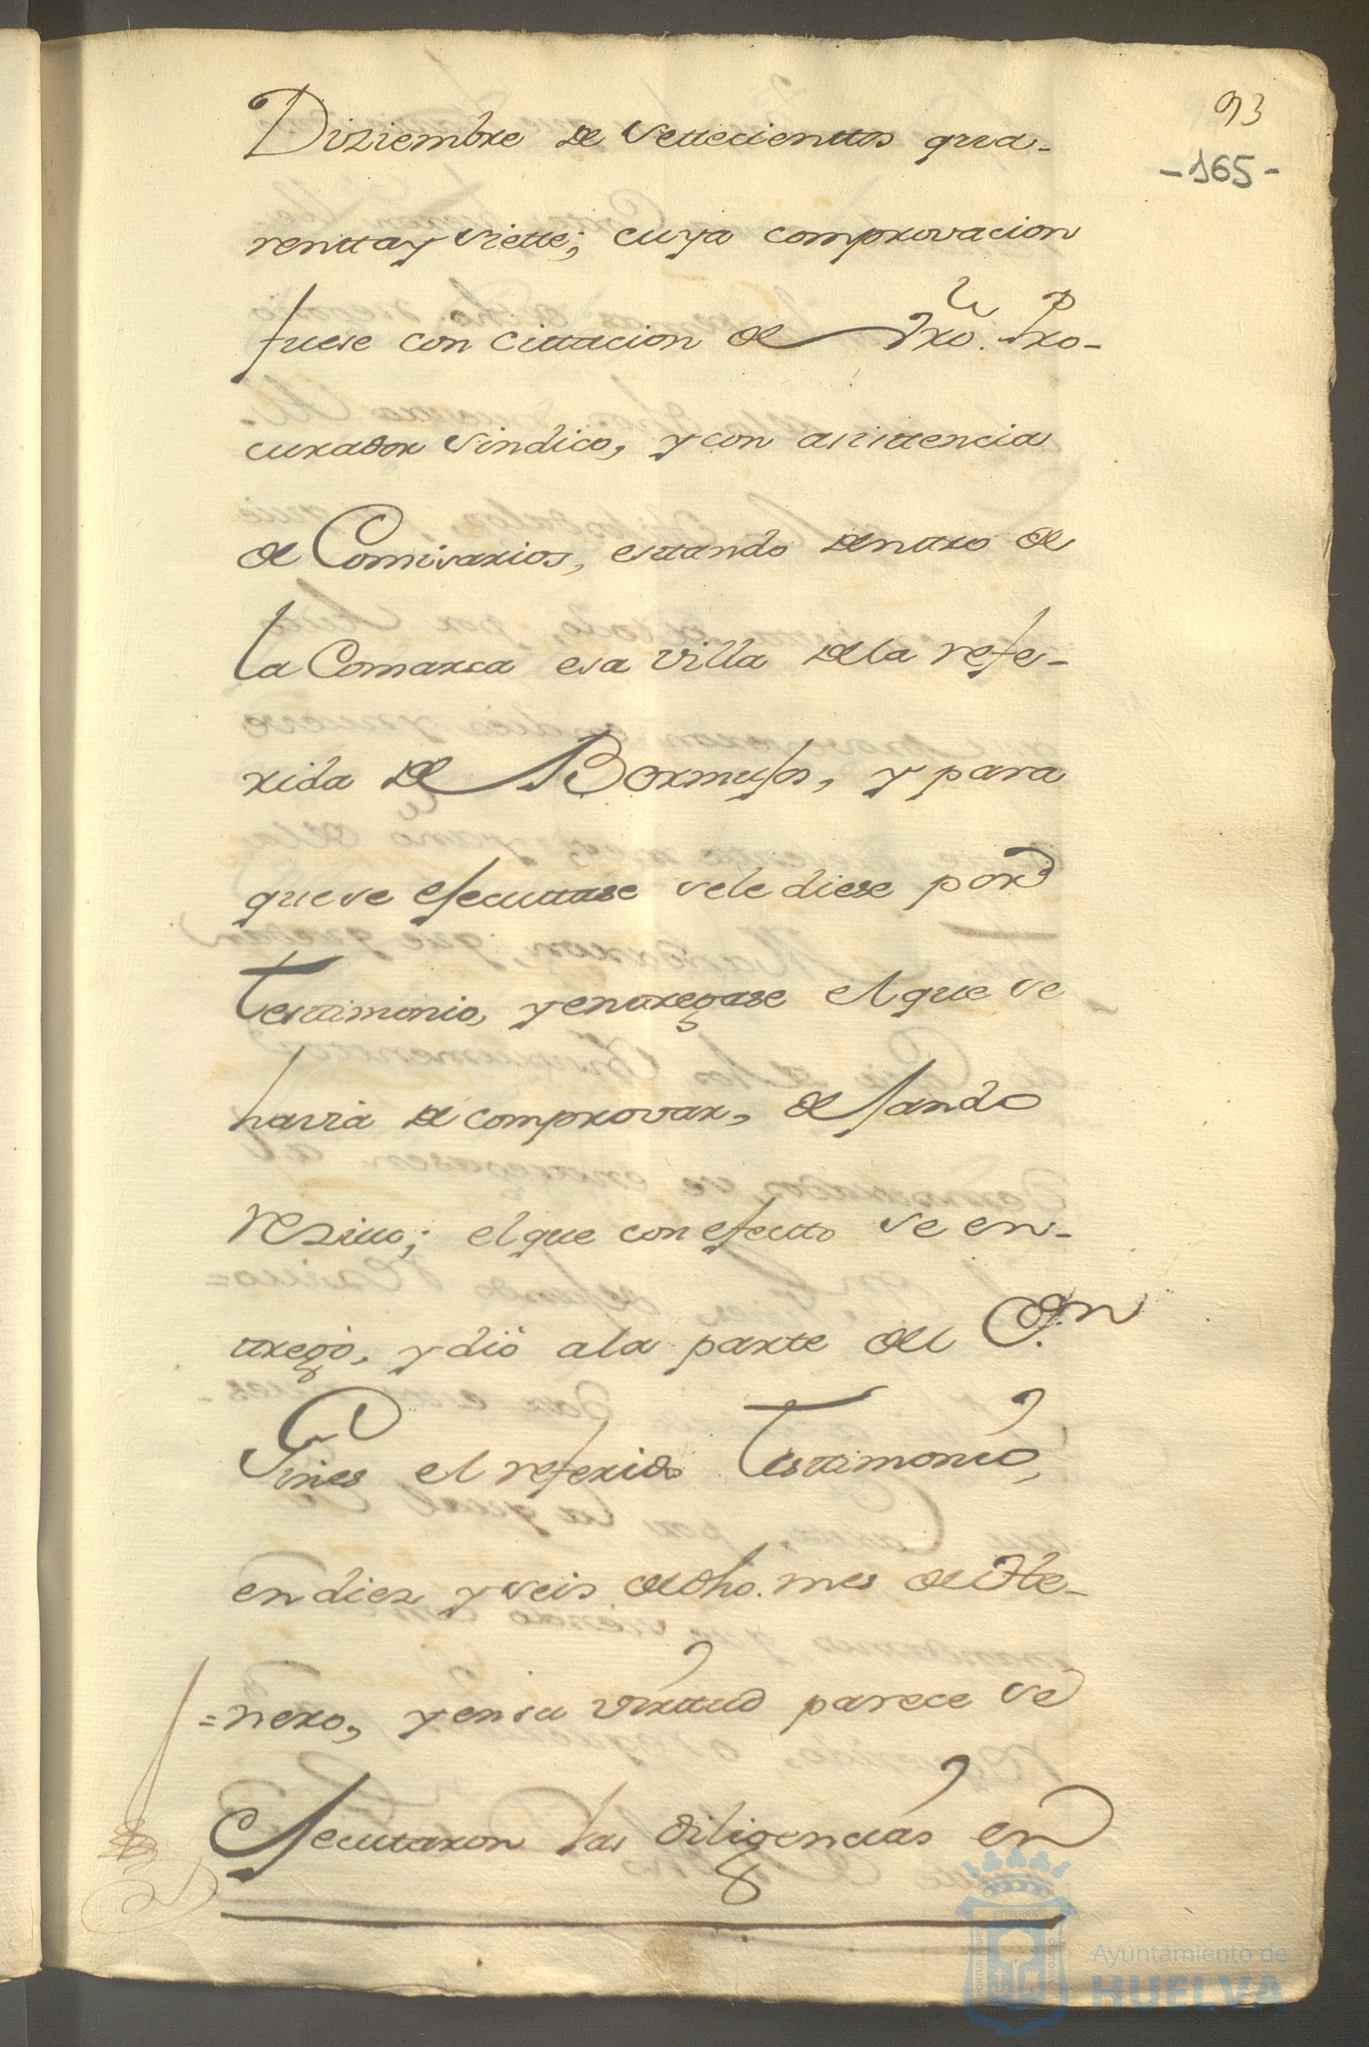 93
-165-
Diziembre de settecienttos qua-
rentta y siette; cuya comprovacion
fuese con cittacion de Nro. Pro-
curador sindico, y con asisttencia
de Comisarios, esttando denttro de
la Comarca esa villa de la refe-
rida de Bormujos, y para
que se ejecuttase se le diese por
Testtimonio, y enttregase el que se
havia de comprovar, dejando
rezivo; el que con efectto se en-
ttregò, y diò a la parte del C.
Gines el referido Testtimonio,
en diez y seis de dho. mes de He-
=nero, y en su virttud parece se
Ejecutaron las diligencias en
Ayuntamiento de
HUELVA